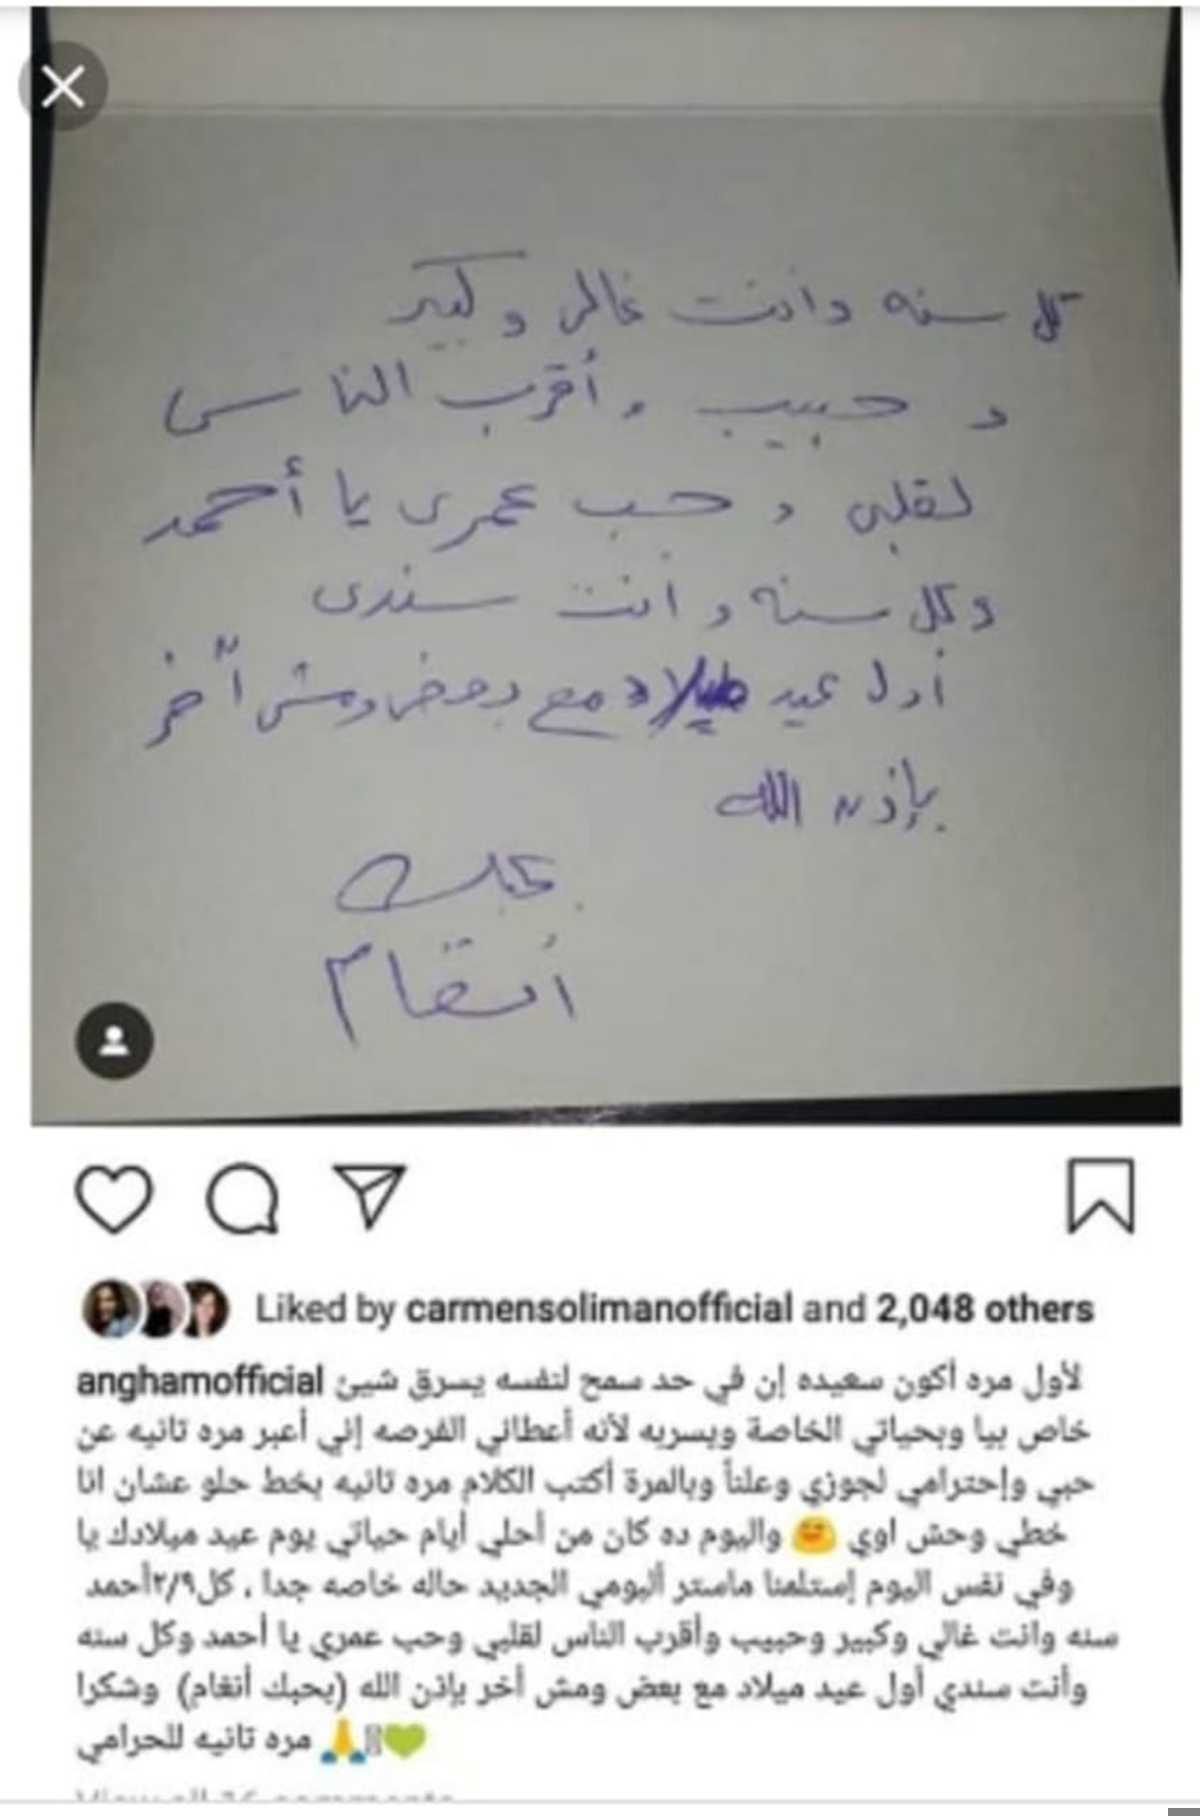 كل سنه وأنت غالى وكبير
وحبيب وأقرب الناس
لقلبى وحب عمرى يا أحمد
وكل سنه وأنت سندى
أول عيد ميلاد مع بعض ومش أخر
بإذن الله
بحبك
أنغام
Liked by carmensolimanofficial and 2,048 others
anghamofficial لأول مره أكون سعيده إن في حد سمح لنفسه يسرق شيئ
خاص بيا وبحياتي الخاصة ويسربه لأنه أعطاني الفرصه إني أعبر مره تانيه عن
حبي وإحترامي لجوزي وعلناً وبالمرة أكتب الكلام مره تانيه بخط حلو عشان انا
خطي وحش اوي 😅 واليوم ده كان من أحلي أيام حياتي يوم عيد ميلادك يا
وفي نفس اليوم إستلمنا ماستر أليومي الجديد حاله خاصه جدا ، كل٢/٩أحمد
سنه وانت غالي وكبير وحبيب وأقرب الناس لقلبي وحب عمري يا أحمد وكل سنه
وأنت سندي أول عيد ميلاد مع بعض ومش أخر بإذن الله (بحبك أنغام) وشكرا
مره تانيه للحرامي 🙏💚